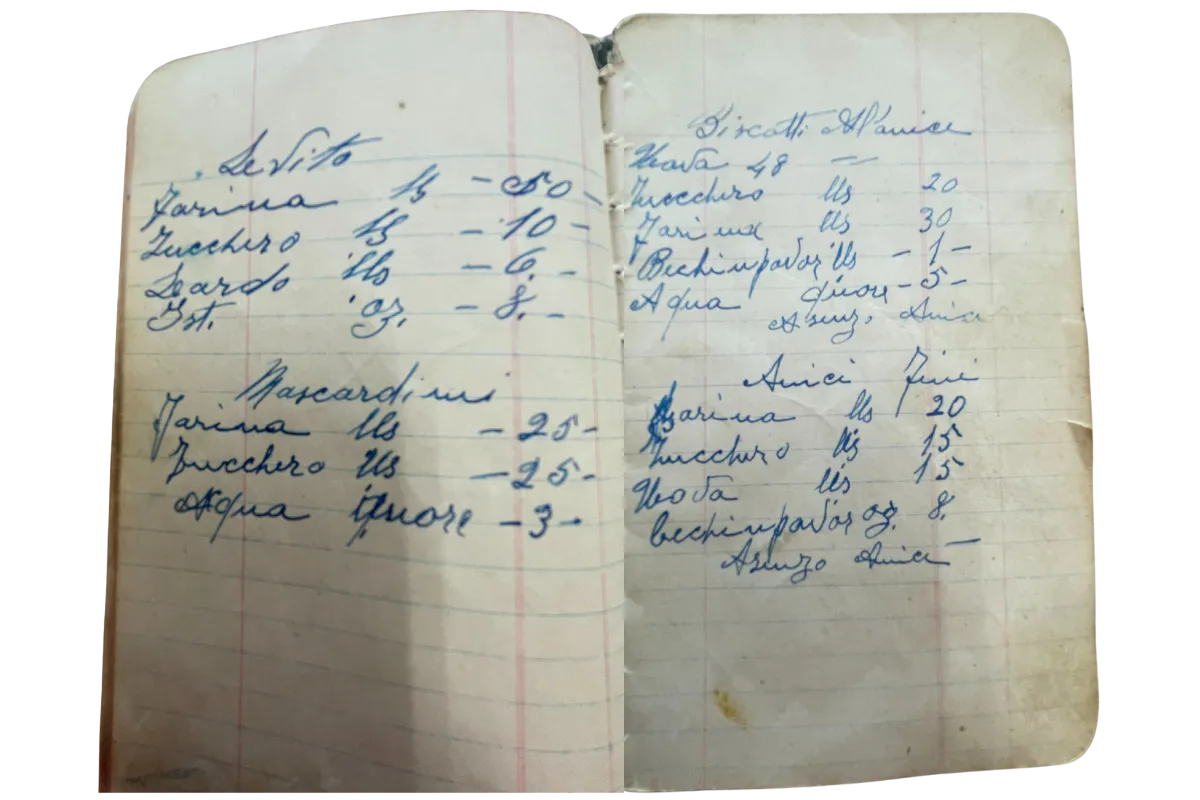 Levito
Farina lbs - 50 -
Zucchero lbs - 10 -
Leardo lbs - 6. -
Ist. oz. - 8. -
Mascardini
Farina lbs - 25 -
Zucchero lbs - 25 -
Aqua quore - 3 -
Biscotti Al'anice
Uova 48 -
Zucchero lbs 20
Farina lbs 30
Bechinpavdor lbs - 1 -
Aqua quore - 5 -
Asenzo Anice
Anici Fini
Farina lbs 20
Zucchero lbs 15
Uova lbs 15
bechinpavdor oz. 8.
Asenzo Anice -